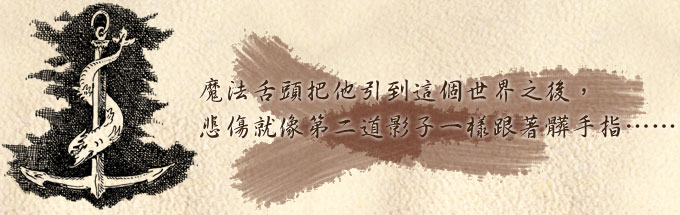 魔法舌頭把他引到這個世界之後，
悲傷就像第二道影子一樣跟著髒手指……